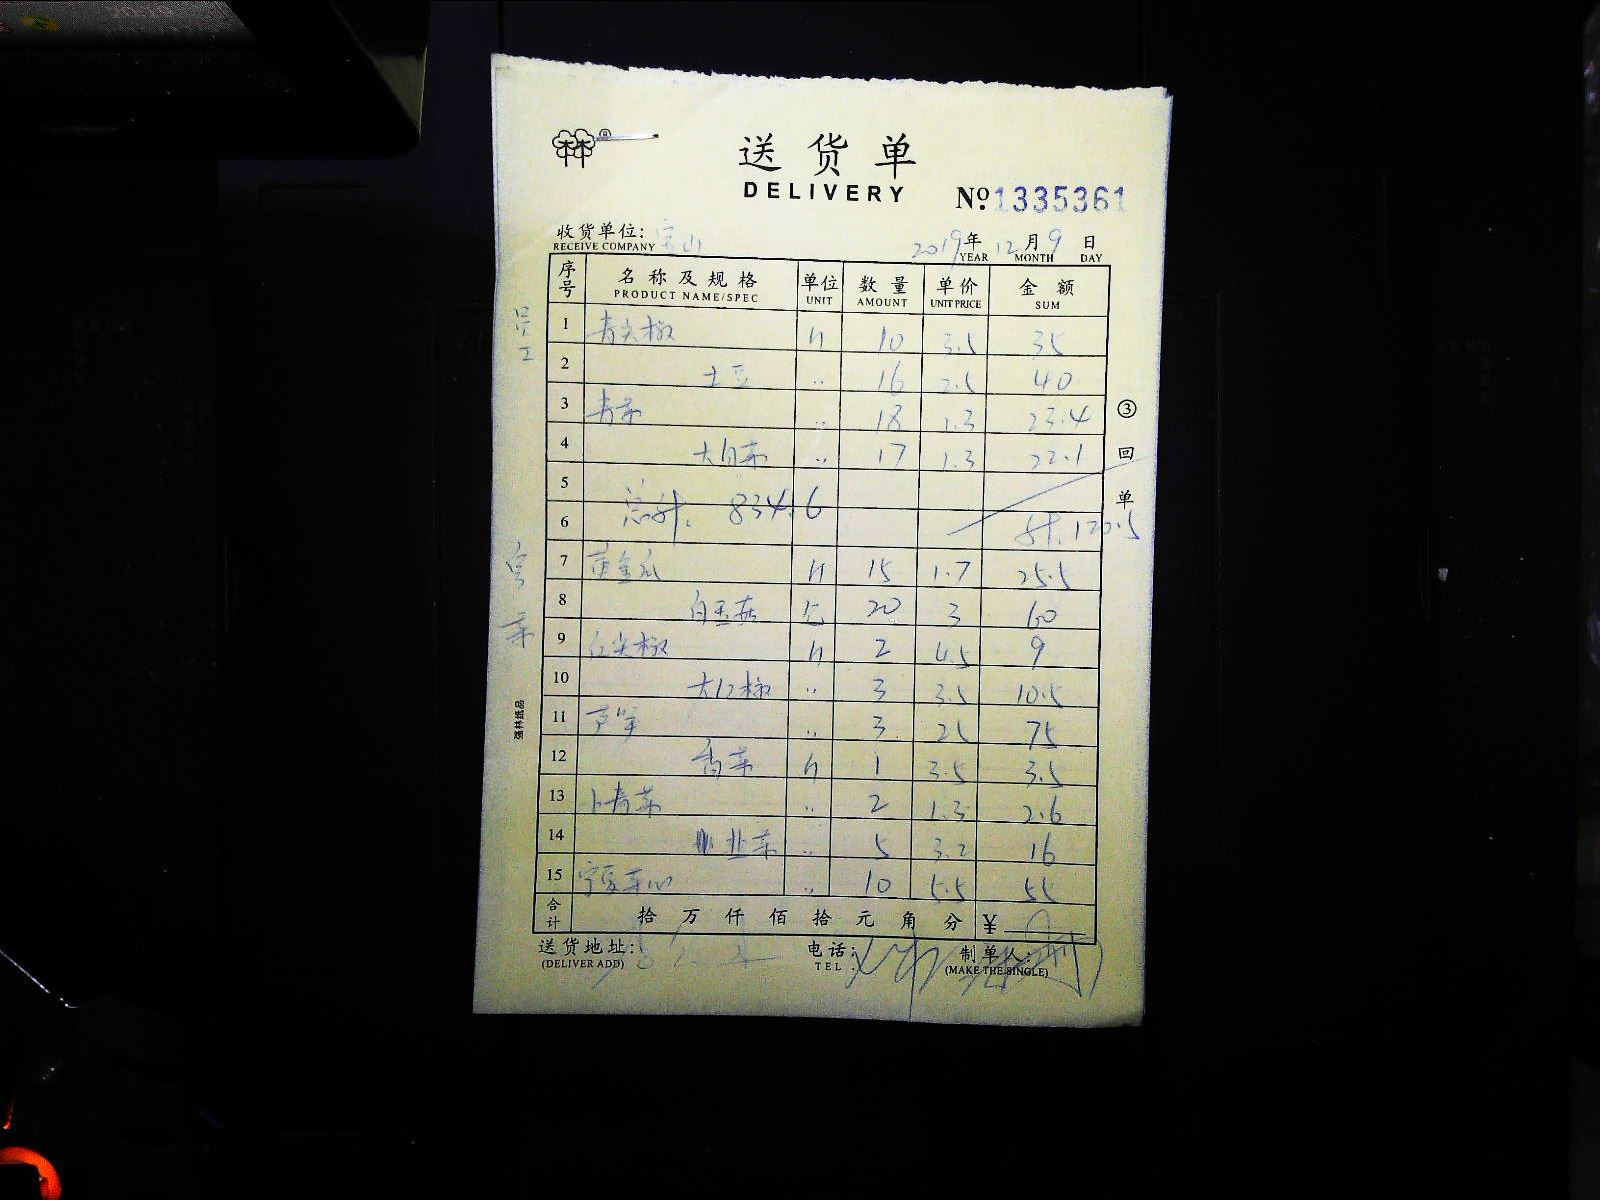 送货单
DELIVERY
№ 1335361
收货单位: 宝山
RECEIVE COMPANY
2019年 12月 9日
YEAR MONTH DAY
序号 名称及规格 单位 数量 单价 金额
PRODUCT NAME/SPEC UNIT AMOUNT UNIT PRICE SUM
员工
1 青尖椒 斤 10 3.5 35
2 土豆 〃 16 2.5 40
3 青菜 〃 18 1.3 23.4
4 大白菜 〃 17 1.3 22.1
5
总计: 834.6
6 计: 120.5
7 黄金瓜 斤 15 1.7 25.5
8 白玉菇 包 20 3 60
9 红尖椒 斤 2 4.5 9
10 大红椒 〃 3 3.5 10.5
11 芦笋 〃 3 25 75
12 香菜 斤 1 3.5 3.5
13 小青菜 〃 2 1.3 2.6
14 韭菜 〃 5 3.2 16
15 宁夏菜心 〃 10 5.5 55
合计 拾 万 仟 佰 拾 元 角 分 ¥
送货地址:
(DELIVER ADD)
电话:
TEL:
制单人:
(MAKE THE SINGLE)
③回单
强林纸品